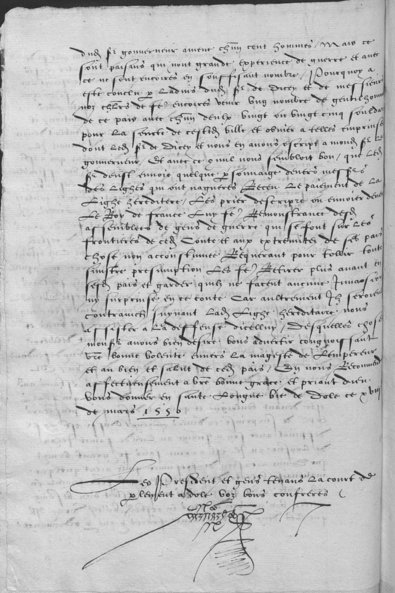 dud sr gouverneur aient chun cent hommes / Mais ce
sont paisans qui nont grande experience de guerre et avec
ce ne sont encoires en souffisant nombre / Pourquoy a
este conclu p ladvis dud sr de Dicey et de messieurs
noz chiefz de fe encoires venir ung nombre de gentilzhommes
de ce pais avec chun deulx vingt ou vingt cinq souldars
pour la seurte de cested ville et obvier a telles emprinses
dont led sr de Dicey et nous en avons escript a monsr le
gouverneur Et avec ce quil nous sembloit bon / que led
sr deust envoier quelque psonnaige devers messrs
des Lighes qui ont naguerres Receu le paiement de la
Lighe hereditere / Les prier descripre ou envoier devers
le Roy de france luy fe Remonstrance desd
assemblees de gens de guerre qui se font sur les
frontieres de ced Conte et aux extremites de ses pais
chose non accoustumee Requerant pour toller toute
sinistre presumption les fe Retirer plus avant en
sesd pais et garder quilz ne facent aucune
ny surprinse en ce conte Car aultrement ilz seroient
contrainctz suyvant lad Lighe hereditaire nous
assister a la deffense dicelluy / Desquelles choses
monsr avons bien desire vous advertir congnoissant
vre bonne volente envers la mageste de lempereur
et au bien et salut de ced pais / Qui nous Recommandons
affectueusement a vre bonne grace et priant dieu
vous donner en sante longue vie de Dole ce xviij
de mars 1556
Les President et gens tenans la court de
plement a dole voz bons confreres /